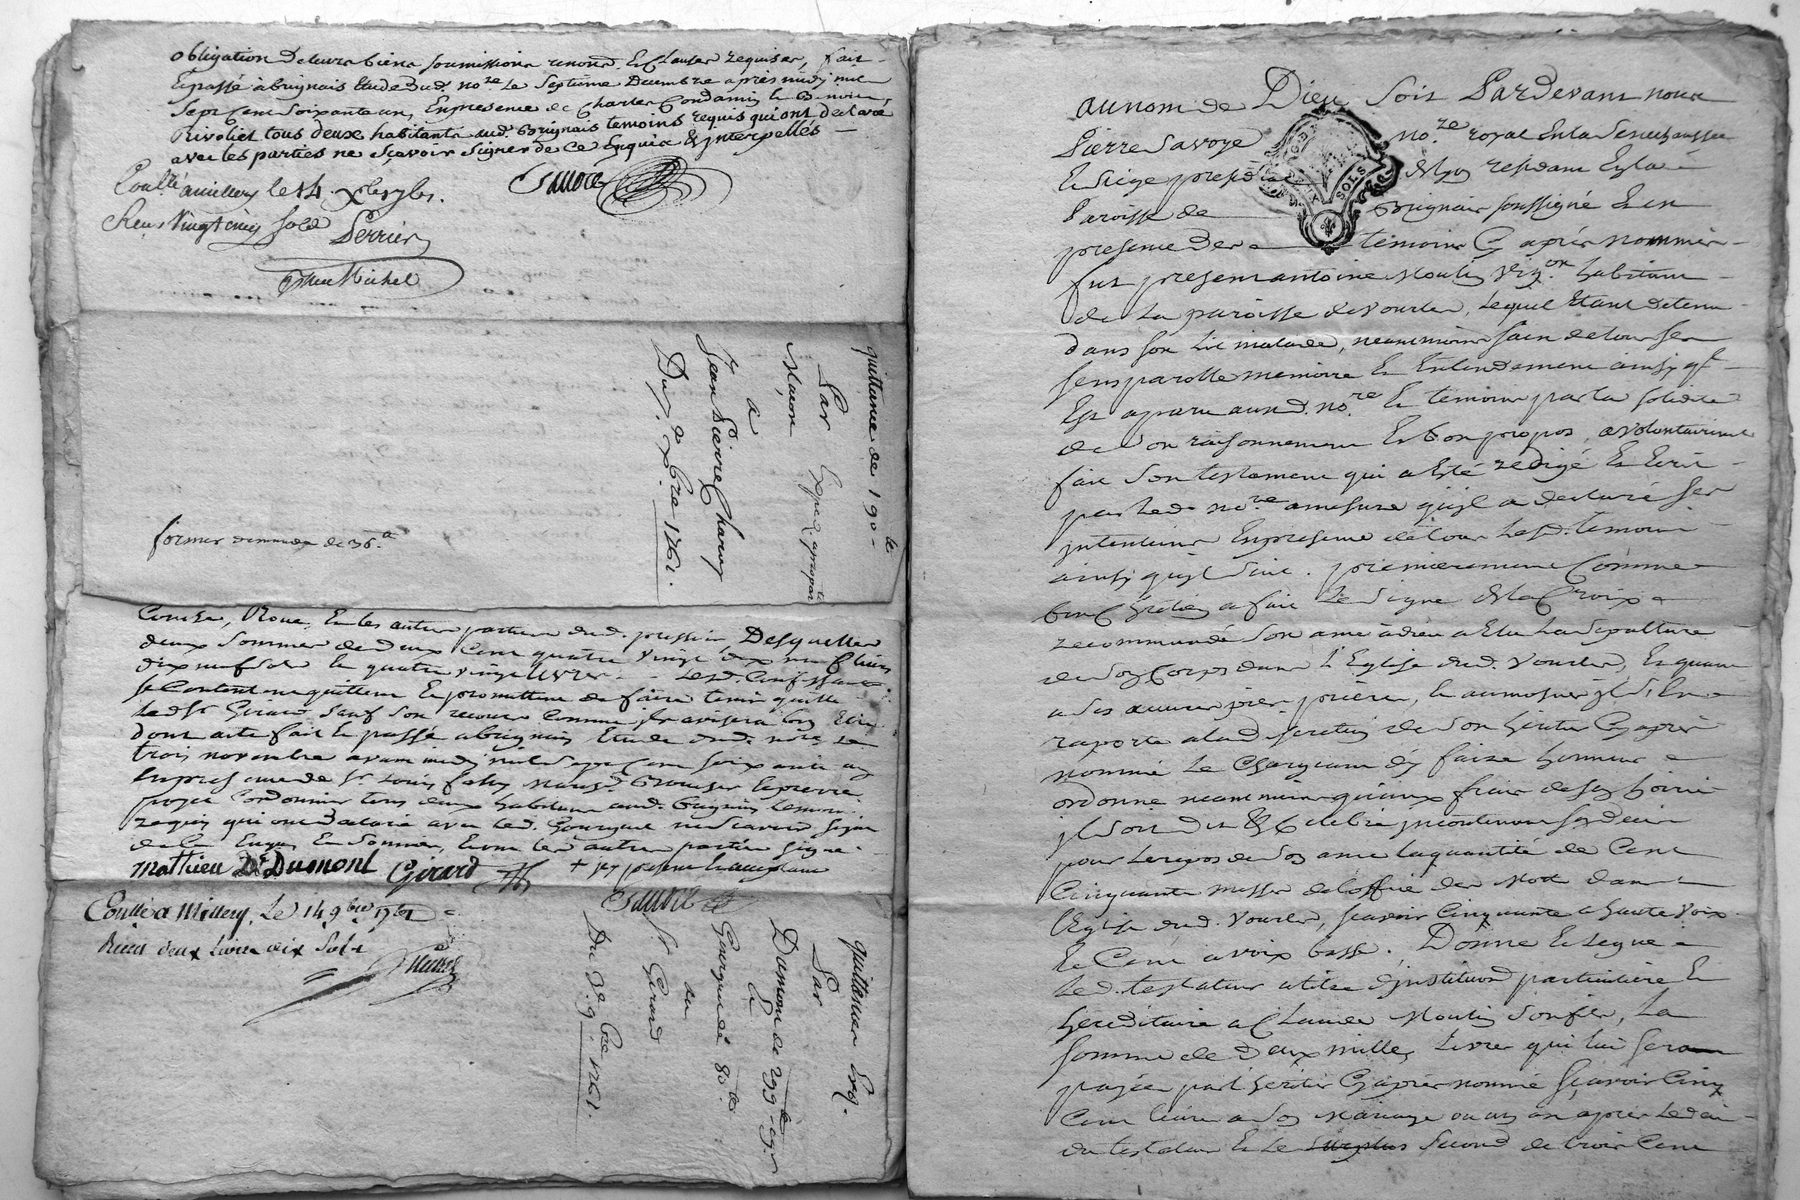 obligation de leurs biens soumissions renond. & clauses requises, fait
& passé a brignais Etude dud. nore. Le septième Decembre après midy mil
sept Cent soixante un, En presence de Charles Condamin & Benoit
Rivollet tous deux habitants aud. Brignais temoins requis qui ont declaré
avec les parties ne sçavoir signer de ce Enquis & interpellés
Savoye
Conllé a millery le 14 xbre 1761.
Reçu vingt cinq sols Perrier
quittance de 190 lt
Par
Maçon
a
Jean Pierre Charvy
Du 7e xbre 1761.
former demande de 36 lt
Comte, Roue, & les autres parties dud. pressoir, Desquelles
deux sommes de deux Cent quatre vingt dix neuf livres
dix neuf sols & quatre vingt livres
se Contentent quittent & promettent de faire tenir quitte
Led. Sr Girard sauf son recours Comme il avisera bon Etre
Dont acte fait & passé a brignais Etude dud. nore. Le
trois novembre avant midy mil sept Cent soixante un
En presence de Sr Louis
Cordonnier tous deux habitans aud. Brignais temoins
requis qui ont Declaré avec led. Gourgue ne sçavoir signer
de ce Enquis & sommés, & ont les autres parties signé.
Mathieu Dt Dumont Girard
Savoye
Conllé a Millery, Le 14 9bre 1761
Reçu deux livres dix sols
quittances
Par
Dumont de 299 lt 19 s
&
Gourgue de 80 lt
au
Sr Girard
Du 3e 9bre 1761.
au nom de Dieu soit Pardevant nous
Pierre Savoye nore. royal En la senechaussée
& siege presidial de Lyon residant En la
Paroisse de Brignais soussigné & en
presence des temoins Cy après nommés
fut present antoine Moulin vign.on habitant
de La paroisse de vourles, Lequel Etant detenu
dans son lit malade, neanmoins sain de tous ses
sens parolle memoire & Entendement ainsy qil
Est aparu aud. nore. & temoins par la solidité
de son raisonnement & bon propos, a volontairement
fait son testament qui a Eté redigé & Ecrit
par led. nore. a mesure qu'il a declaré ses
intentions En presence de tous lesd. temoins
ainsy qu'il suit. premierement Comme
bon Chrétien a fait Le signe de la Croix
recommandé son ame à dieu a Elu La sepulture
de son Corps dans l'Eglise dud. vourles, & quant
a ses œuvres pies, prières, & aumosnes il s'En
raporte a la discretion de son heritier Cy après
nommé Le Chargeant d'y faire honneur
ordonne neanmoins qu'aux frais de son hoirie
il soit dit & Celebré incontinent son decès
pour Le repos de son ame la quantité de Cent
Cinquante messes de l'office des Morts dans
l'Eglise dud. vourles, sçavoir Cinquante a haute voix
& Cent a voix basse. Donne & Legue
Led. testateur a titre d'institution particulière &
hereditaire a Claude Moulin son fils, La
somme de Deux mille Livres qui lui seront
payée par l'heritier Cy après nommé sçavoir Cinq
Cent livres a son Mariage ou un an après Le decès
du testateur & Le surplus second de trois Cent